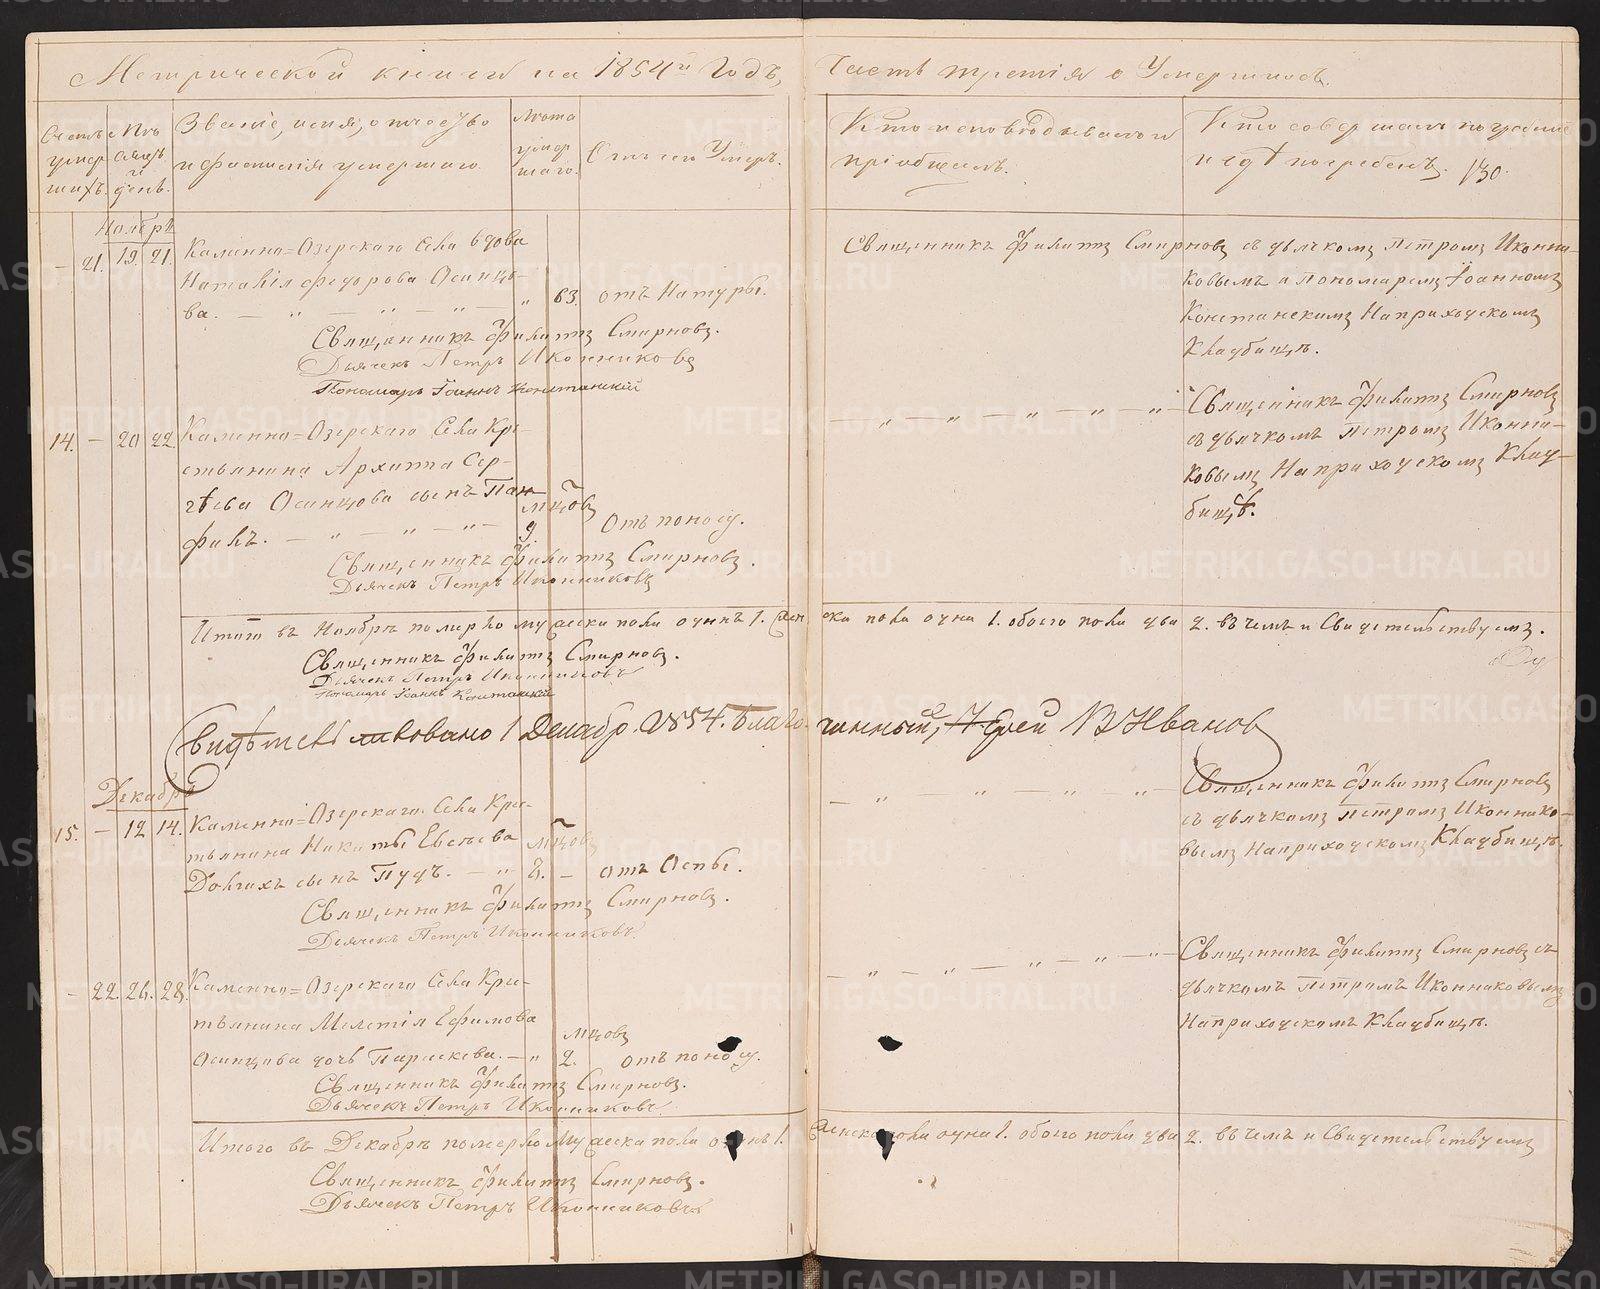 Метрической книги на 1854й Годъ,
Часть третія о Умершихъ.
Счетъ умершихъ.
Мѣсяцъ и день.
Званіе, имя, отчество
и фамилія умершаго.
Лѣта умершаго.
Отъ чего Умеръ.
Кто исповѣдывалъ и
пріобщалъ.
Кто совершалъ погребеніе
и гдѣ погребенъ. 130.
Ноября
21. 19. 21. Каменно=Озерскаго Села вдова
Наталія Федорова Осинце-
ва. 63. отъ Натуры.
Священникъ Филиппъ Смирновъ.
Дьячекъ Петръ Иконниковъ
Пономарь Іоаннъ Констанскій
Священникъ Филиппъ Смирновъ съ дьячкомъ Петромъ Иконни-
ковымъ и Пономаремъ Іоанномъ
Констанскимъ На приходскомъ
Кладбищѣ.
14. 20 22 Каменно=Озерскаго Села Кре-
стьянина Архиппа Сер-
гѣева Осинцова сынъ Пан-
филъ. мѣцовъ 9. Отъ поносу.
Священникъ Филиппъ Смирновъ.
Дьячекъ Петръ Иконниковъ
Священникъ Филиппъ Смирновъ
съ дьячкомъ Петромъ Иконни-
ковымъ На приходскомъ Клад-
бищѣ.
Итого въ Ноябрѣ померло мужеска пола одинъ 1. женска пола одна 1. обоего пола два 2. въ чемъ и Свидетельствуемъ.
Священникъ Филиппъ Смирновъ.
Дьячекъ Петръ Иконниковъ
Пономарь Іоаннъ Констанскій
Свидѣтельствовано 1 Декабр. 1854. Благочинный, Іерей В Ивановъ
Декабря
15. 12 14. Каменно=Озерскаго Села Кре-
тьянина Никиты Евсѣева
Долгихъ сынъ Пудъ. мѣцовъ 8. отъ Оспы.
Священникъ Филиппъ Смирновъ.
Дьячекъ Петръ Иконниковъ.
Священникъ Филиппъ Смирновъ
съ дьячкомъ Петромъ Иконнико-
вымъ На приходскомъ Кладбищѣ.
22. 26. 28. Каменно=Озерскаго Села Крес-
тьянина Мелетія Ефимова
Осинцова дочь Параскева. мцовъ 2. отъ поносу.
Священникъ Филиппъ Смирновъ.
Дьячекъ Петръ Иконниковъ.
Священникъ Филиппъ Смирновъ съ
дьячкомъ Петромъ Иконниковымъ
На приходскомъ Кладбищѣ.
Итого въ Декабрѣ померло Мужеска пола одинъ 1. Женска пола одна 1. обоего пола два 2. въ чемъ и Свидетельствуемъ
Священникъ Филиппъ Смирновъ.
Дьячекъ Петръ Иконниковъ
METRIKI.GASO-URAL.RU